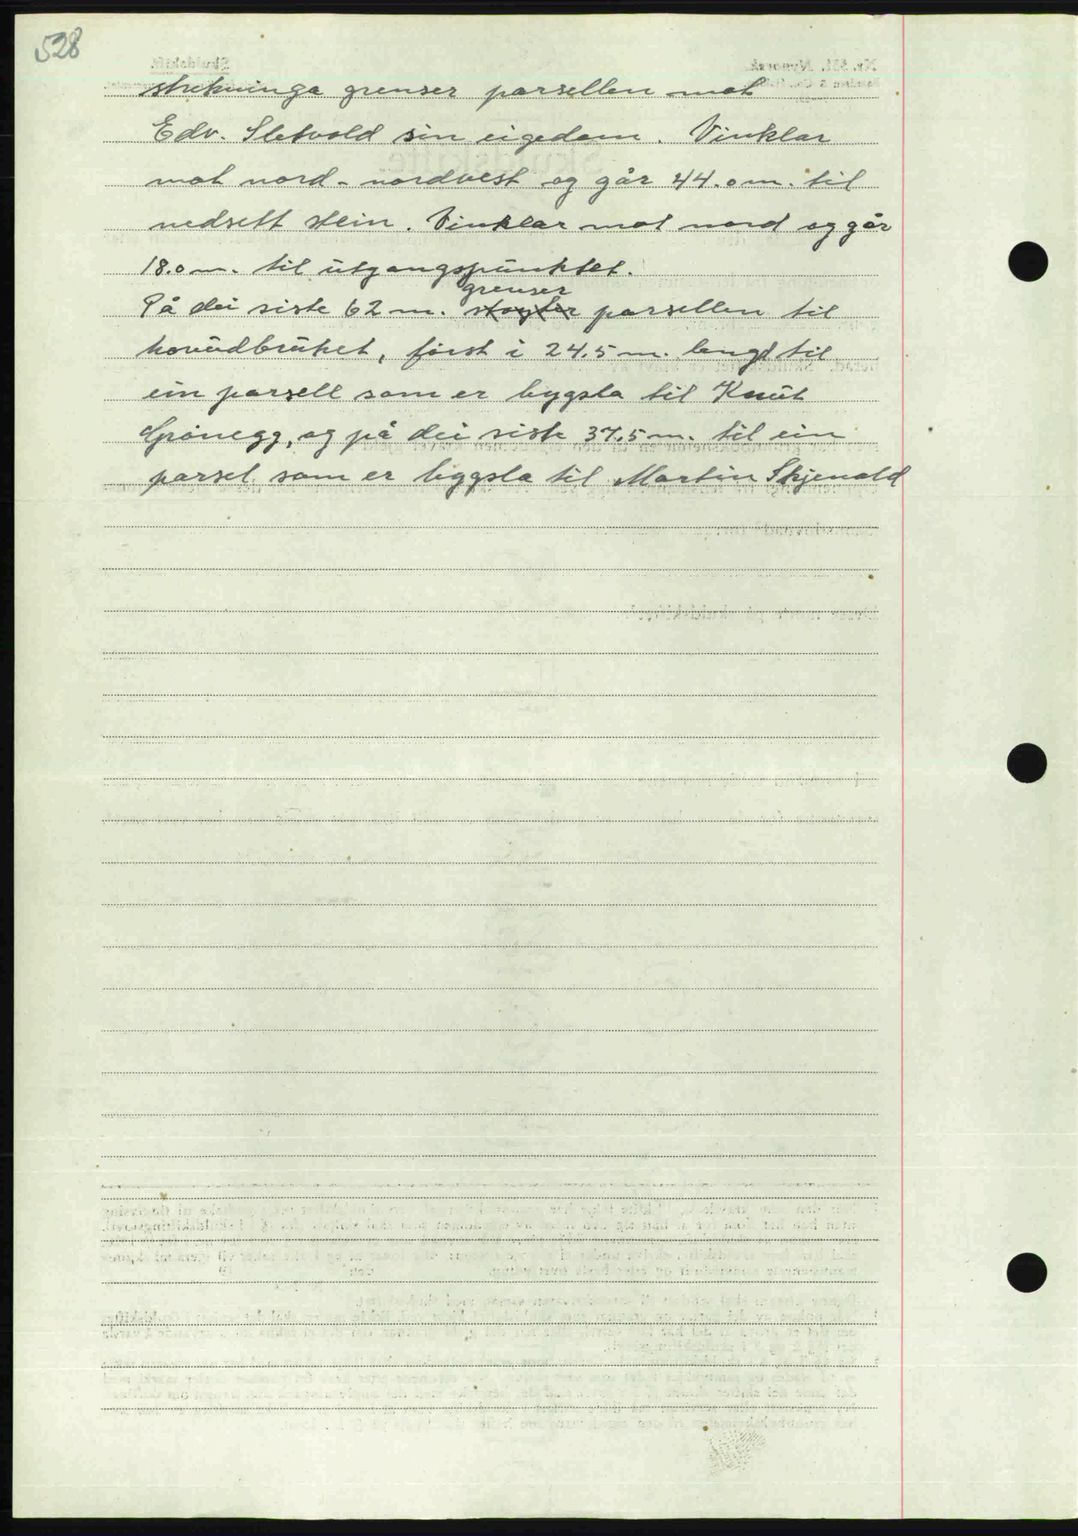 528
strekninga grenser parsellen mot
Edv. Sletvold sin eigedom. Vinklar
mot nord-nordvest og går 44.0 m. til
nedsett stein. Vinklar mot nord og går
18.0 m. til utgangspunktet.
grenser
På dei siste 62 m. støyter parsellen til
hovudbruket, først i 24.5 m. lengd til
ein parsell som er bygsla til Knut
Grønegg, og på dei siste 37.5 m. til ein
parsel som er bygsla til Martin Skjevold